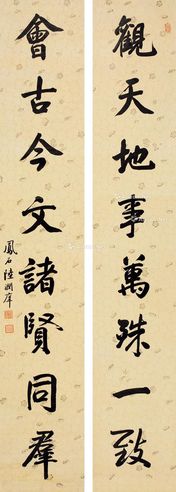 觀天地事萬殊一致
會古今文諸賢同羣
鳳石陸潤庠